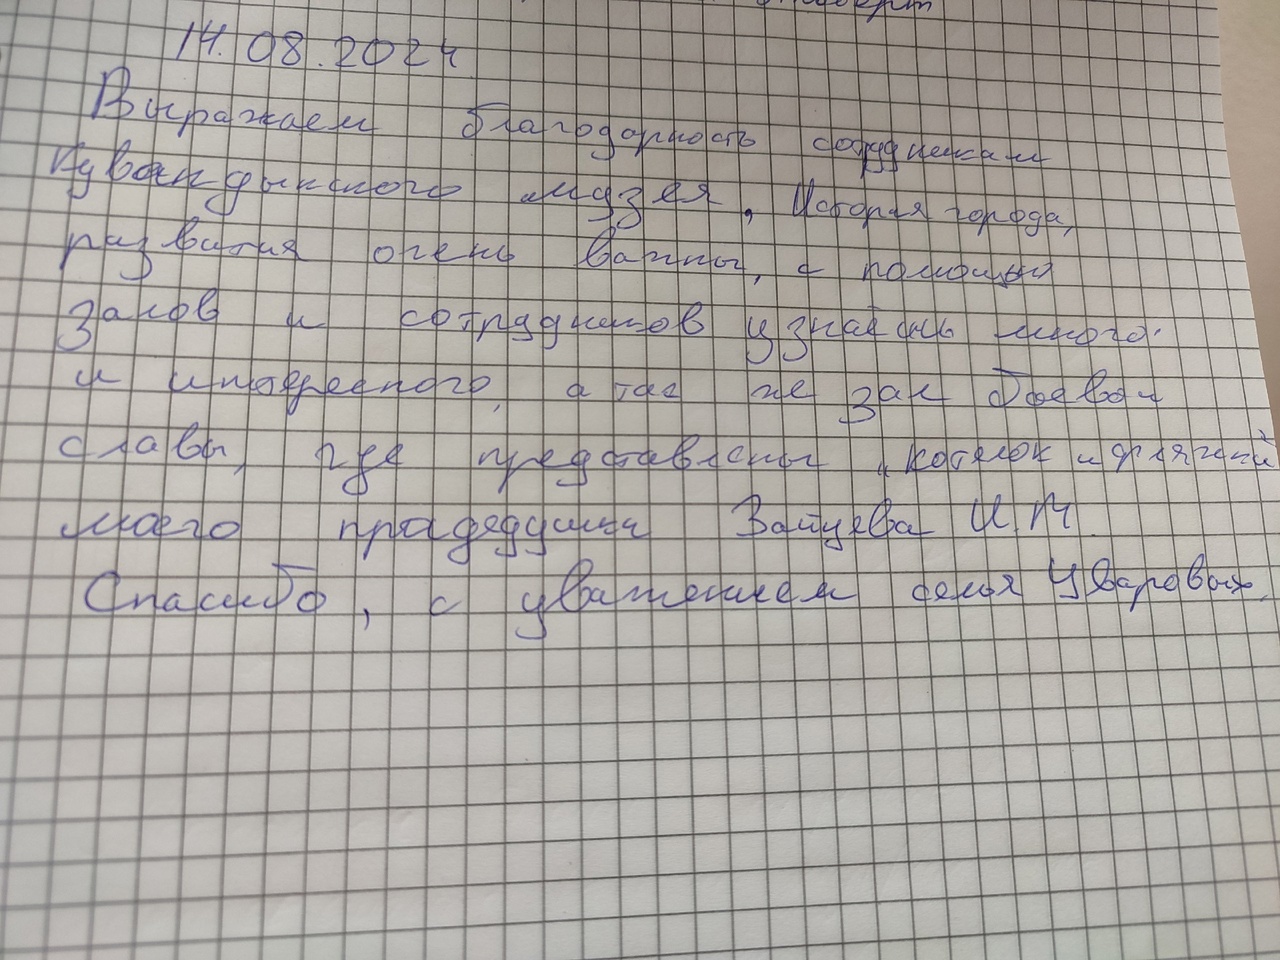 14.08.2024
Выражаем благодарность сотрудникам
Кувандыкского музея, История города,
развития очень важны, с помощью
залов и сотрудников узнаёшь много
и интересного, а так же зал боевой
славы, где представлены котелок и
моего прадедушки Зайцева И.М
Спасибо, с уважением семья Уваровых.